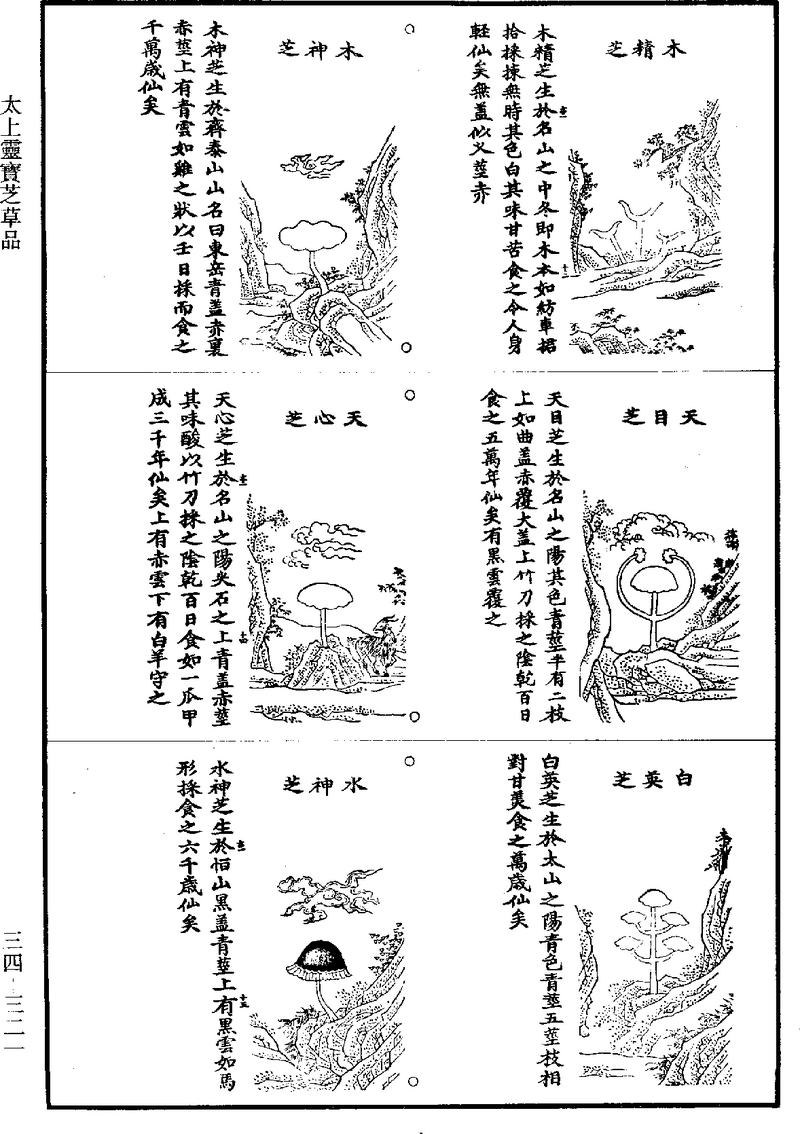 太上靈寶芝草品
木精芝
木精芝生於名山之中冬即木本如紡車裙
拾採揀無時其色白其味甘苦食之令人身
輕仙矣無蓋似义莖赤
木神芝
木神芝生於齊泰山山名曰東岳青蓋赤裏
赤莖上有青雲如雞之狀以壬日採而食之
千萬歲仙矣
天目芝
天目芝生於名山之陽其色青莖半有二枝
上如曲蓋赤覆大蓋上竹刀採之陰乾百日
食之五萬年仙矣有黑雲覆之
天心芝
天心芝生於名山之陽夾石之上青蓋赤莖
其味酸以竹刀採之陰乾百日食如一爪甲
成三千年仙矣上有赤雲下有白羊守之
白英芝
白英芝生於太山之陽青色青莖五莖枝相
對甘美食之萬歲仙矣
水神芝
水神芝生於恒山黑蓋青莖上有黑雲如馬
形採食之六千歲仙矣
三四-三二一